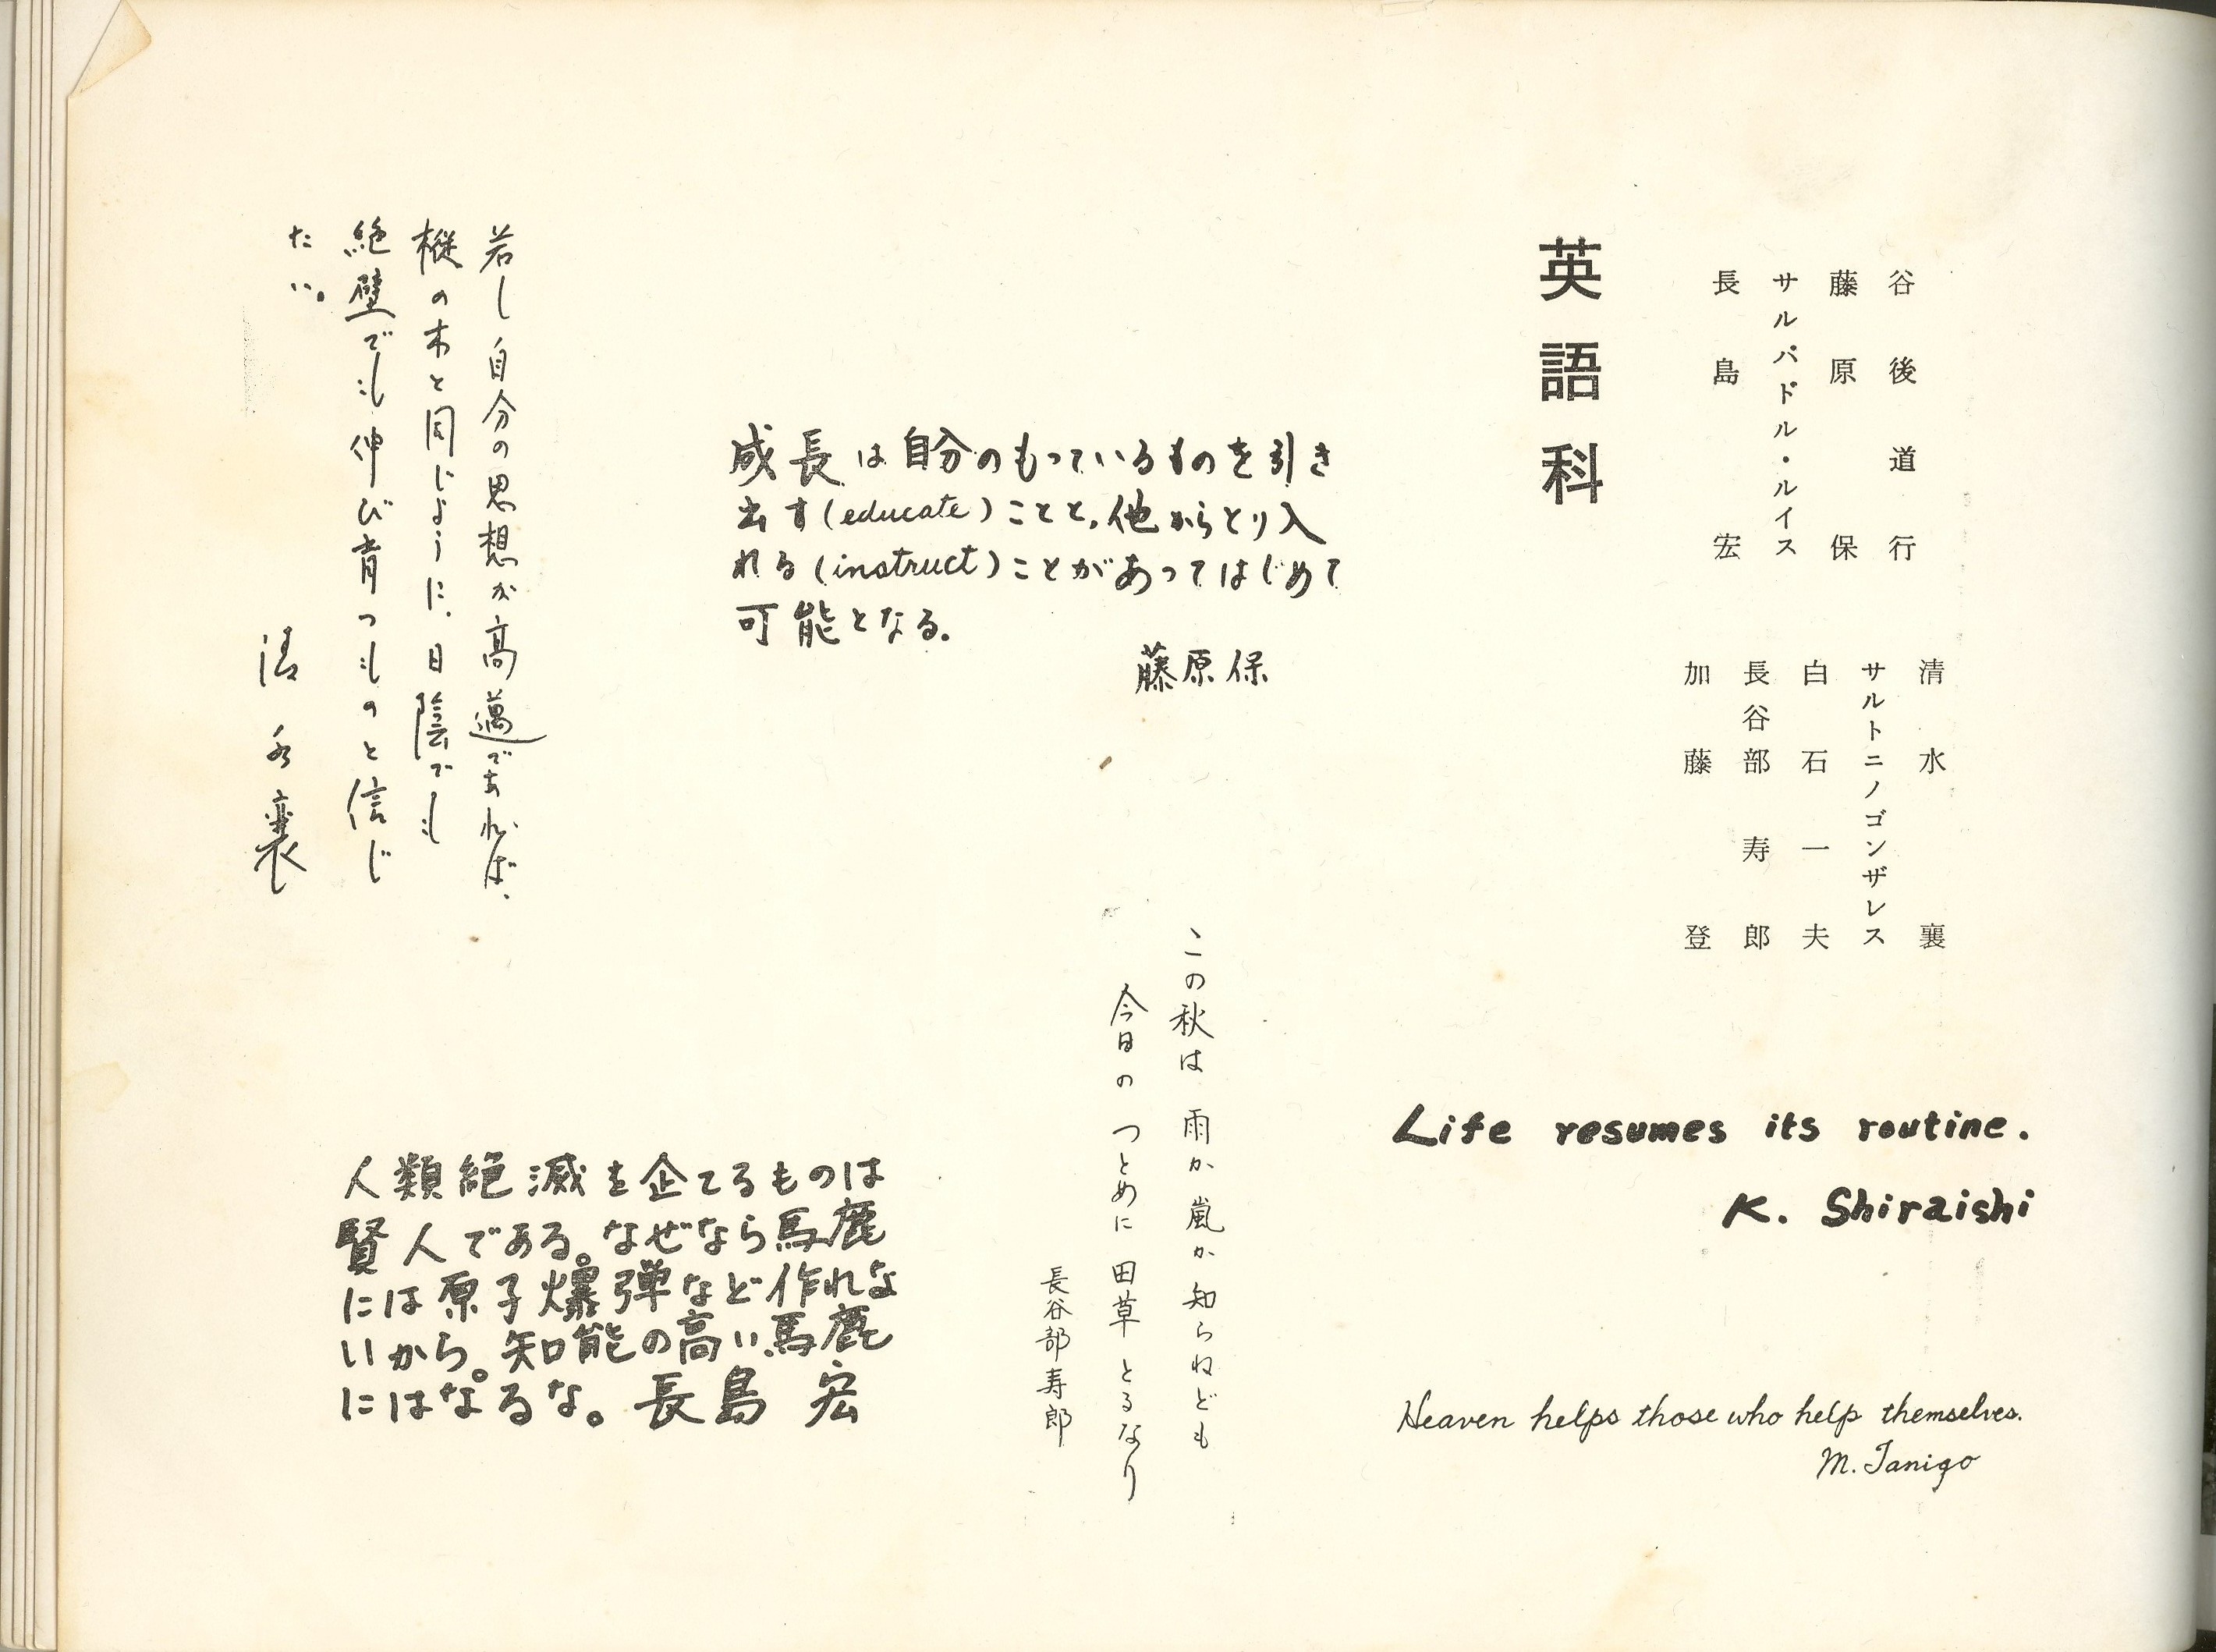 谷後道行
藤原保
サルバドル・ルイス
長島宏
清水襄
サルトニノゴンザレス
白石一夫
長谷部寿郎
加藤登
英語科
Life resumes its routine.
K. Shiraishi
Heaven helps those who help themselves.
M. Tanigo
成長は自分のもっているものを引き
出す(educate)ことと,他からとり入
れる(instruct)ことがあってはじめて
可能となる。
藤原保
この秋は雨か嵐か知らねども
今日のつとめに田草とるなり
長谷部寿郎
若し自分の思想が高邁であれば、
樅の木と同じように、日陰でも
絶壁でも伸び育つものと信じ
たい。
清水襄
人類絶滅を企てるものは
賢人である。なぜなら馬鹿
には原子爆弾など作れな
いから。知能の高い馬鹿
にはなるな。長島宏